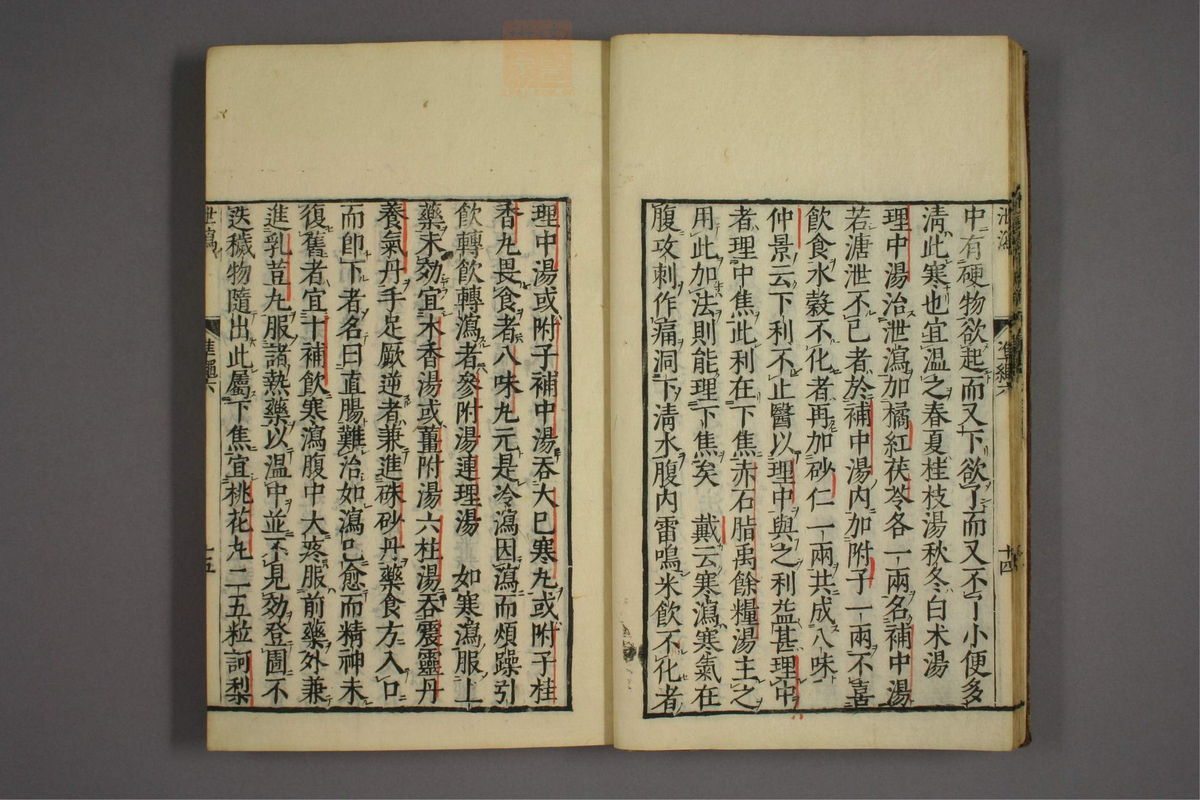 中有硬物欲起而又下欲了而又不了小便多
清此寒也宜温之春夏桂枝湯秋冬白术湯
理中湯治泄瀉加橘紅茯苓各一兩名補中湯
若溏泄不已者於補中湯內加附子一兩不喜
飲食水穀不化者再加砂仁一兩共成八味
仲景云下利不止醫以理中與之利益甚理中
者理中焦此利在下焦赤石脂禹餘糧湯主之
用此加法則能理下焦矣 戴云寒瀉寒氣在
腹攻刺作痛洞下清水腹內雷鳴米飲不化者
十四
理中湯或附子補中湯吞大已寒丸或附子桂
香丸畏食者八味丸元是冷瀉因瀉而煩躁引
飲轉飲轉瀉者參附湯連理湯 如寒瀉服上
藥未効宜木香湯或薑附湯六柱湯吞震靈丹
養氣丹手足厥逆者兼進硃砂丹藥食方入口
而卽下者名曰直腸難治如瀉已愈而精神未
復舊者宜十補飲寒瀉腹中大疼服前藥外兼
進乳荳丸服諸熱藥以温中並不見効登圊不
迭穢物隨出此屬下焦宜桃花丸二五粒訶梨
泄瀉 準繩六 十五